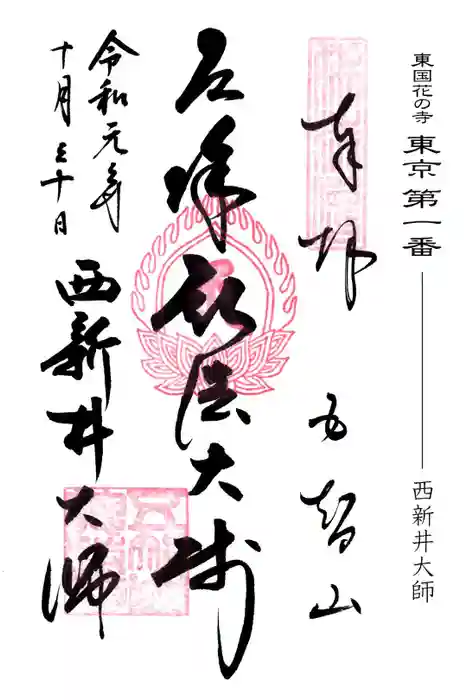 東国花の寺 東京 第一番 ── 西新井大師
奉拝 五智山
厄除弘法大師
令和元年
十月三十日
西新井大師